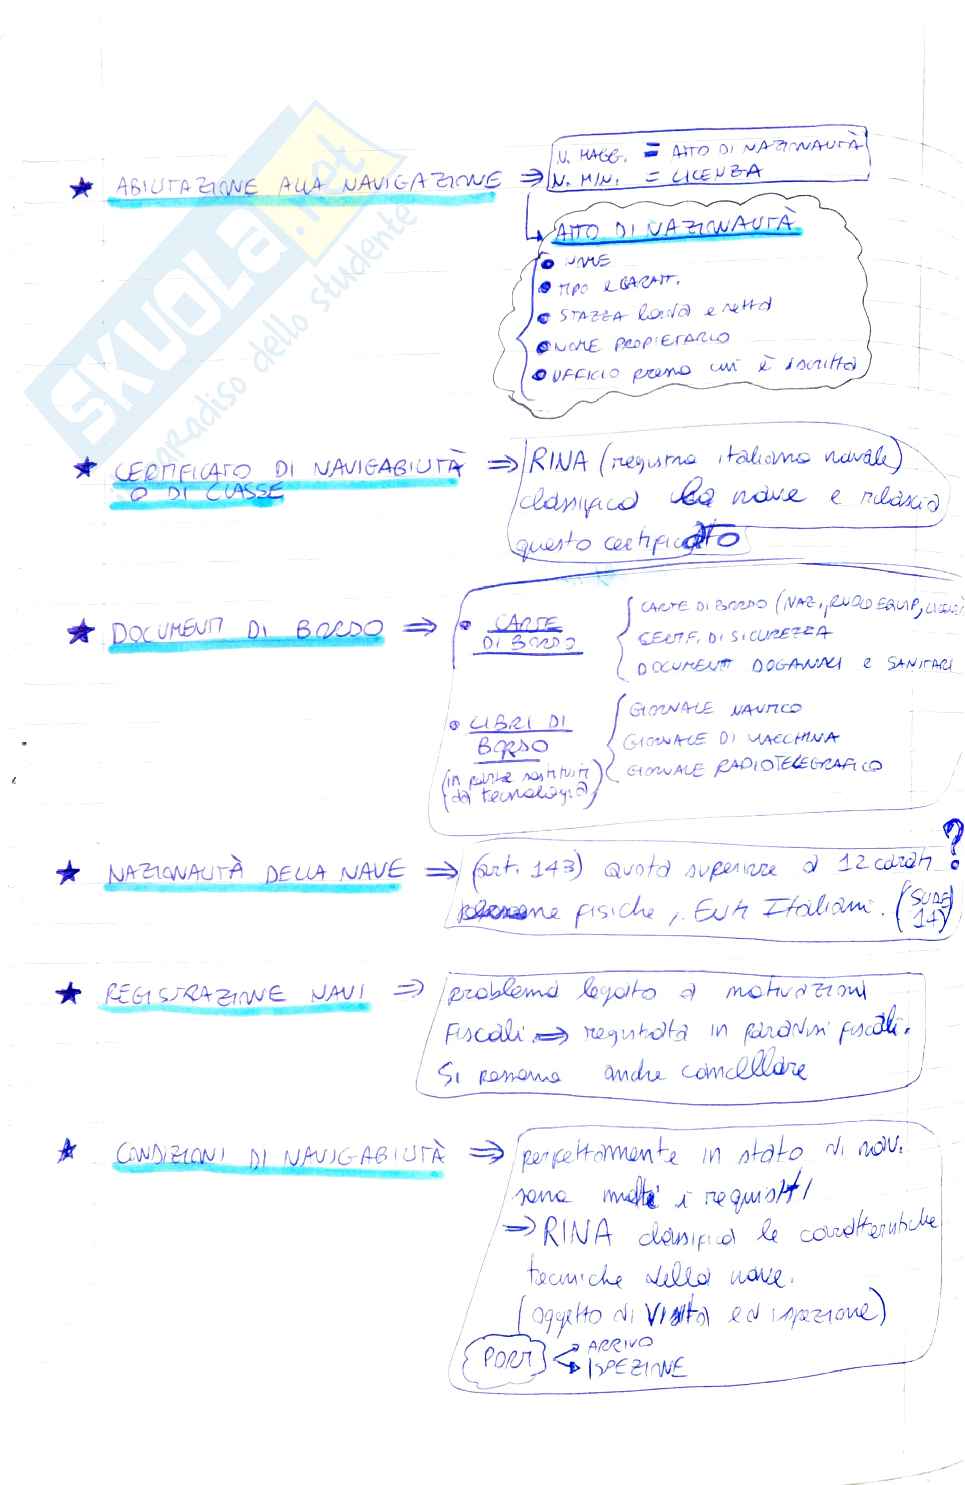 SKUOLA.net
paradiso dello studente
★ ABILITAZIONE ALLA NAVIGAZIONE ⇒
N. MAGG. = ATTO DI NAZIONALITÀ
N. MIN. = LICENZA
ATTO DI NAZIONALITÀ
• NOME
• TIPO e CARATT.
• STAZZA lorda e netta
• NOME PROPIETARIO
• UFFICIO presso cui è iscritta
★ CERTIFICATO DI NAVIGABILITÀ ⇒ RINA (registro italiano navale)
O DI CLASSE
classifica la nave e rilascia
questo certificato
★ DOCUMENTI DI BORDO ⇒
• CARTE
DI BORDO
CARTE DI BORDO (NAZ., RUOLO EQUIP,
CERTIF. DI SICUREZZA
DOCUMENTI DOGANALI e SANITARI
• LIBRI DI
BORDO
(in parte sostituiti
da tecnologia)
GIORNALE NAUTICO
GIORNALE DI MACCHINA
GIORNALE RADIOTELEGRAFICO
★ NAZIONALITÀ DELLA NAVE ⇒ (art. 143) Quota superiore a 12 carati ?
persone fisiche, Enti Italiani. (SLIDE
14)
★ REGISTRAZIONE NAVI ⇒ problema legato a motivazioni
fiscali. ⇒ registrata in paradisi fiscali.
Si possono anche cancellare
★ CONDIZIONI DI NAVIGABILITÀ ⇒ perfettamente in stato di nav.
sono molti i requisiti
⇒ RINA classifica le caratteristiche
tecniche della nave.
(oggetto di visita ed ispezione)
PORTI
ARRIVO
ISPEZIONE